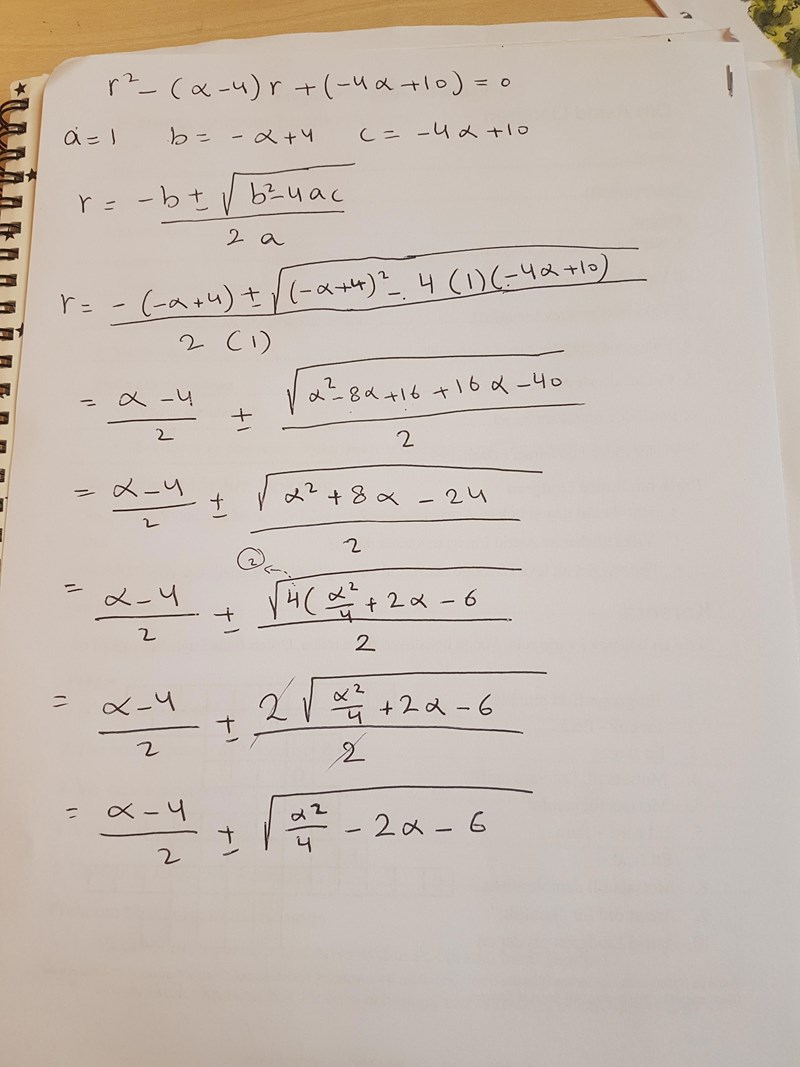 r² - (α-4)r + (-4α+10) = 0
a=1 b= -α+4 c= -4α+10
r = -b ± √(b²-4ac) / 2a
r = -(-α+4) ± √((-α+4)² - 4(1)(-4α+10)) / 2(1)
= α-4 / 2 ± √(α²-8α+16+16α-40) / 2
= α-4 / 2 ± √(α²+8α-24) / 2
②
= α-4 / 2 ± √(4(α²/4 + 2α - 6) / 2
= α-4 / 2 ± 2√(α²/4 + 2α - 6) / 2
= α-4 / 2 ± √(α²/4 - 2α - 6)